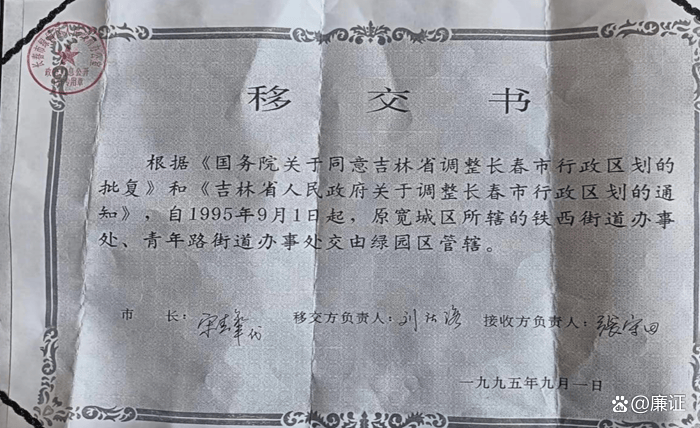 移 交 书
根据《国务院关于同意吉林省调整长春市行政区划的
批复》和《吉林省人民政府关于调整长春市行政区划的通
知》，自1995年9月1日起，原宽城区所辖的铁西街道办事
处、青年路街道办事处交由绿园区管辖。
市 长： 代 移交方负责人： 接收方负责人：张守田
一九九五年九月一日
@廉证